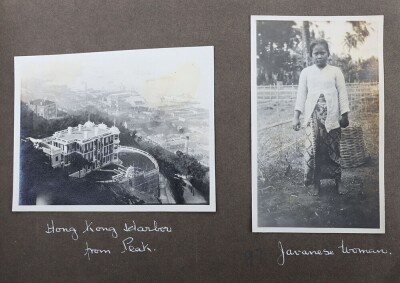 Hong Kong Harbor
from Peak.
Javanese Woman.